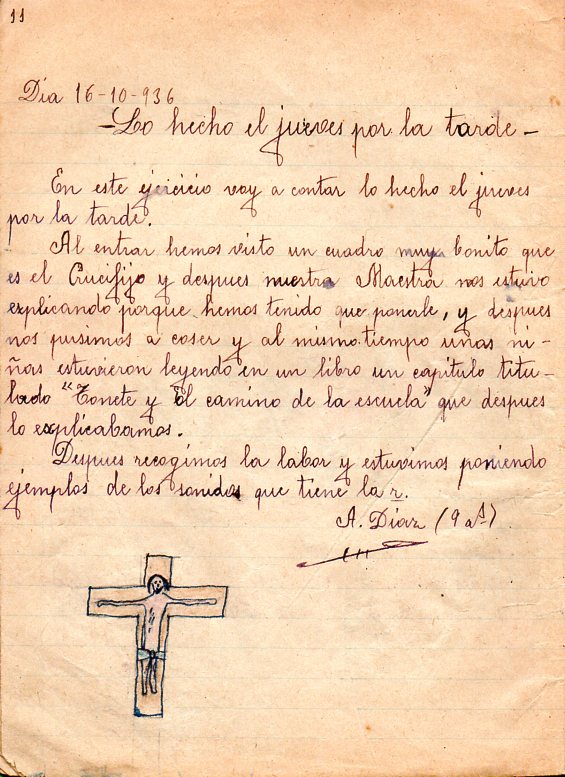 11
Día 16-10-936
-Lo hecho el jueves por la tarde-
En este ejercicio voy a contar lo hecho el jueves
por la tarde.
Al entrar hemos visto un cuadro muy bonito que
es el Crucifijo y despues nuestra Maestra nos estuvo
explicando porque hemos tenido que ponerle, y despues
nos pusimos a coser y al mismo tiempo unas ni-
ñas estuvieron leyendo en un libro un capitulo titu-
lado "Tonete y El camino de la escuela" que despues
lo explicabamos.
Despues recogimos la labor y estuvimos poniendo
ejemplos de los sonidos que tiene la r.
A. Díaz (9 aˢ)